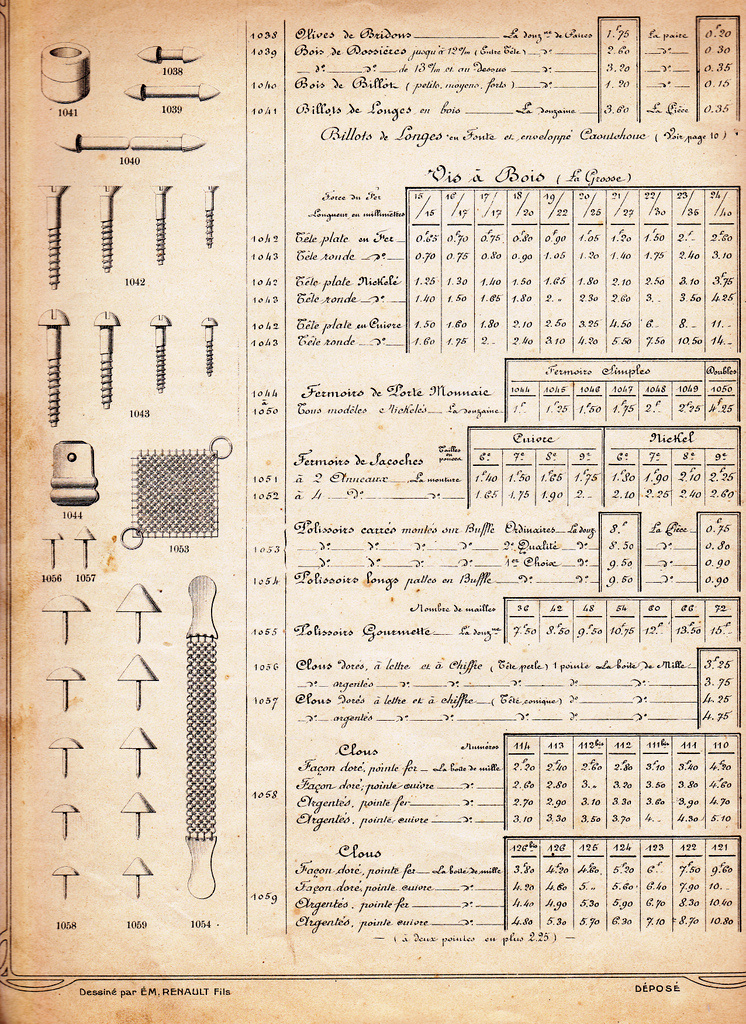 1038 Olives de Bridons La douz.ne de Paires 1f.75 La paire 0f.20
1039 Bois de Dossières jusqu'à 12c/m (Entre Tête) d° 2.60 d° 0 30
d° d° de 13c/m et au dessus d° 3.20 d° 0.35
1040 Bois de Billot (petits, moyens, forts) d° 1.20 d° 0.15
1041 Billots de Longes en bois La douzaine 3.60 La Pièce 0.35
Billots de Longes en Fonte et enveloppé Caoutchouc (Voir page 10)
Vis à Bois (La Grosse)
Force du Fer 15 16 17 17 18 19 20 21 22 23 24
Longueur en millimètres /15 /17 /17 /20 /22 /25 /27 /30 /35 /40
1042 Tête plate en Fer 0f.65 0f.70 0f.75 0f.80 0f.90 1f.05 1f.20 1f.50 2f.- 2f.60
1043 Tête ronde d° 0.70 0.75 0.80 0.90 1.05 1.20 1.40 1.75 2.40 3.10
1042 Tête plate Nickelé 1.25 1.30 1.40 1.50 1.65 1.80 2.10 2.50 3.10 3.75
1043 Tête ronde d° 1.40 1.50 1.65 1.80 2.. 2.30 2.60 3. 3.50 4.25
1042 Tête plate en Cuivre 1.50 1.60 1.80 2.10 2.50 3.25 4.50 6. 8. 11.
1043 Tête ronde d° 1.60 1.75 2. 2.40 3.10 4.20 5.50 7.50 10.50 14.
Fermoirs Simples Doubles
1044 1045 1046 1047 1048 1049 1050
1044 à 1050 Fermoirs de Porte Monnaie
Tous modèles Nickelés La douzaine 1f. 1f.25 1f.50 1f.75 2f. 2f.25 4f.25
Cuivre Nickel
Fermoirs de Sacoches Tailles en pouces 6° 7° 8° 9° 6° 7° 8° 9°
1051 à 2 Anneaux La monture 1f.40 1f.50 1f.65 1f.75 1f.80 1f.90 2f.10 2f.25
1052 à 4 d° d° 1.65 1.75 1.90 2. 2.10 2.25 2.40 2.60
Polissoirs carrés montés sur Buffle Ordinaires La douz. 8.f La Pièce 0f.75
1053 d° d° d° d° 2e Qualité d° 8.50 d° 0.80
d° d° d° d° 1er Choix d° 9.50 d° 0.90
1054 Polissoirs longs pattes en Buffle d° d° 9.50 d° 0.90
Nombre de mailles 36 42 48 54 60 66 72
1055 Polissoirs Gourmette La douz.ne 7f.50 8f.50 9f.50 10f.75 12f. 13f.50 15f.
1056 Clous dorés, à lettre et à chiffre (Tête perle) 1 pointe La boîte de Mille 3f.25
d° argentés d° d° d° d° 3.75
1057 Clous dorés à lettre et à chiffre (Tête conique) d° d° 4.25
d° argentés d° d° d° d° 4.75
Clous Numéros 114 113 112bis 112 111bis 111 110
Façon doré, pointe fer La boîte de mille 2f.20 2f.40 2f.60 2f.80 3f.10 3f.40 4f.20
1058 Façon doré, pointe cuivre d° 2.60 2.80 3. 3.20 3.50 3.80 4.60
Argentés, pointe fer d° 2.70 2.90 3.10 3.30 3.60 3.90 4.70
Argentés, pointe cuivre d° 3.10 3.30 3.50 3.70 4. 4.30 5.10
Clous 126bis 126 125 124 123 122 121
Façon doré, pointe fer La boîte de mille 3f.80 4f.20 4f.60 5f.20 6f. 7f.50 9f.60
Façon doré, pointe cuivre d° 4.20 4.60 5.. 5.60 6.40 7.90 10.
1059 Argentés, pointe fer d° 4.40 4.90 5.30 5.90 6.70 8.30 10.40
Argentés, pointe cuivre d° 4.80 5.30 5.70 6.30 7.10 8.70 10.80
(à deux pointes en plus 2.25)
1038
1041
1039
1040
1042
1043
1044
1053
1056 1057
1058 1059 1054
Dessiné par ÉM. RENAULT Fils
DÉPOSÉ